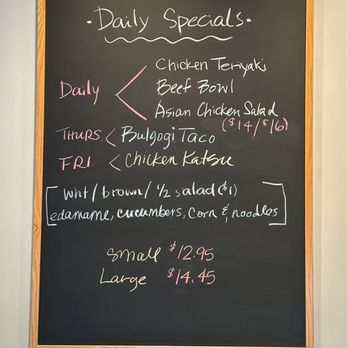 · Daily Specials ·
Chicken Teriyaki
Daily < Beef Bowl
Asian Chicken Salad
($14/$16)
THURS < Bulgogi Taco
FRI < Chicken Katsu
[wht/brown/ 1/2 salad ($1)
edamame, cucumbers, Corn & noodles]
Small $12.95
Large $14.45